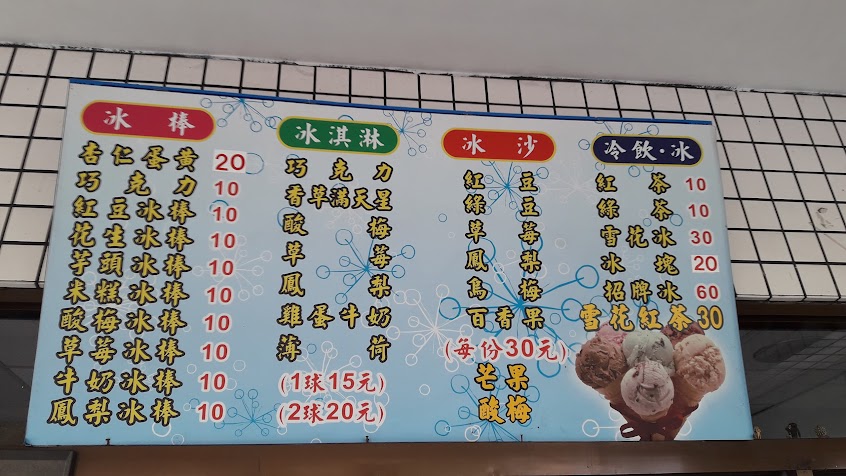 冰棒
杏仁蛋黃 20
巧克力 10
紅豆冰棒 10
花生冰棒 10
芋頭冰棒 10
米糕冰棒 10
酸梅冰棒 10
草莓冰棒 10
牛奶冰棒 10
鳳梨冰棒 10
冰淇淋
巧克力
香草滿天星
酸梅
草莓
鳳梨
雞蛋牛奶
薄荷
(1球15元)
(2球20元)
冰沙
紅豆
綠豆
草莓
鳳梨
烏梅
百香果
(每份30元)
芒果
酸梅
冷飲·冰
紅茶 10
綠茶 10
雪花冰 30
冰塊 20
招牌冰 60
雪花紅茶 30